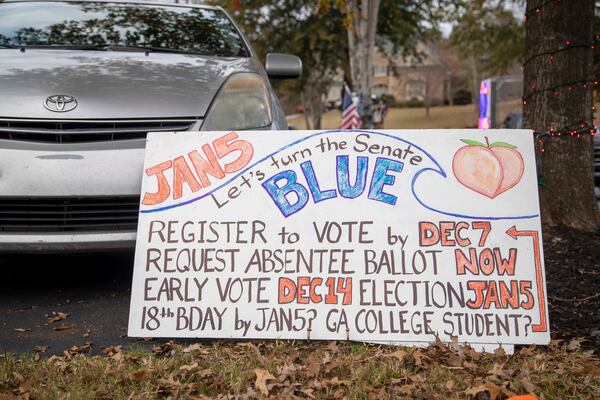 JAN5
Let's turn the Senate
BLUE
REGISTER to VOTE by DEC 7
REQUEST ABSENTEE BALLOT NOW
EARLY VOTE DEC14 ELECTION JAN5
18th BDAY by JAN5? GA COLLEGE STUDENT?